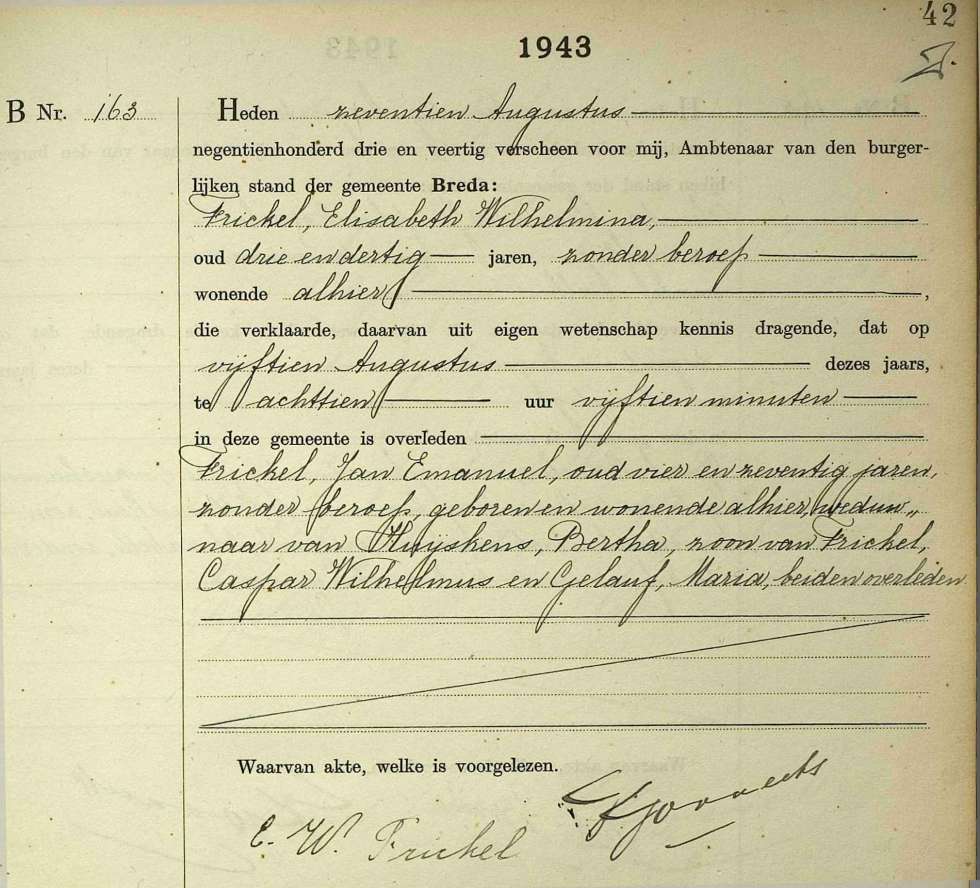 42
1943
B Nr. 163
Heden zeventien Augustus
negentienhonderd drie en veertig verscheen voor mij, Ambtenaar van den burger-
lijken stand der gemeente Breda:
Frickel, Elisabeth Wilhelmina,
oud drie en dertig jaren, zonder beroep
wonende alhier,
die verklaarde, daarvan uit eigen wetenschap kennis dragende, dat op
vijftien Augustus dezes jaars,
te achttien uur vijftien minuten
in deze gemeente is overleden
Frickel, Jan Emanuel, oud vier en zeventig jaren,
zonder beroep, geboren en wonende alhier, weduw„
naar van Huijskens, Bertha, zoon van Frickel,
Caspar Wilhelmus en Gelauf, Maria, beiden overleden
Waarvan akte, welke is voorgelezen.
E. W. Frickel